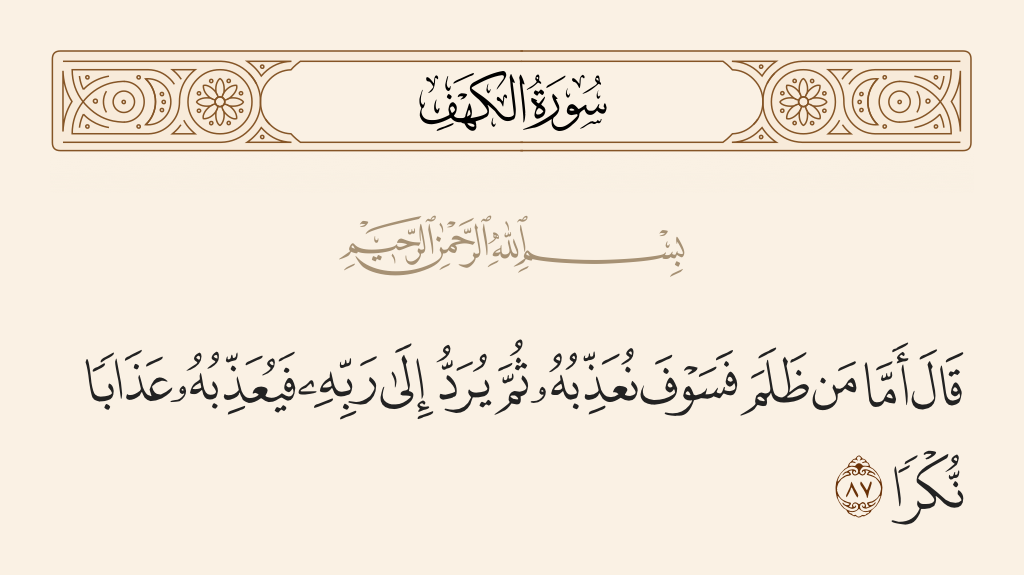 سُورَةُ الكَهْفِ
بِسْمِ ٱللَّهِ ٱلرَّحْمَٰنِ ٱلرَّحِيمِ
قَالَ أَمَّا مَن ظَلَمَ فَسَوْفَ نُعَذِّبُهُۥ ثُمَّ يُرَدُّ إِلَىٰ رَبِّهِۦ فَيُعَذِّبُهُۥ عَذَابًا
نُّكْرًا ٨٧